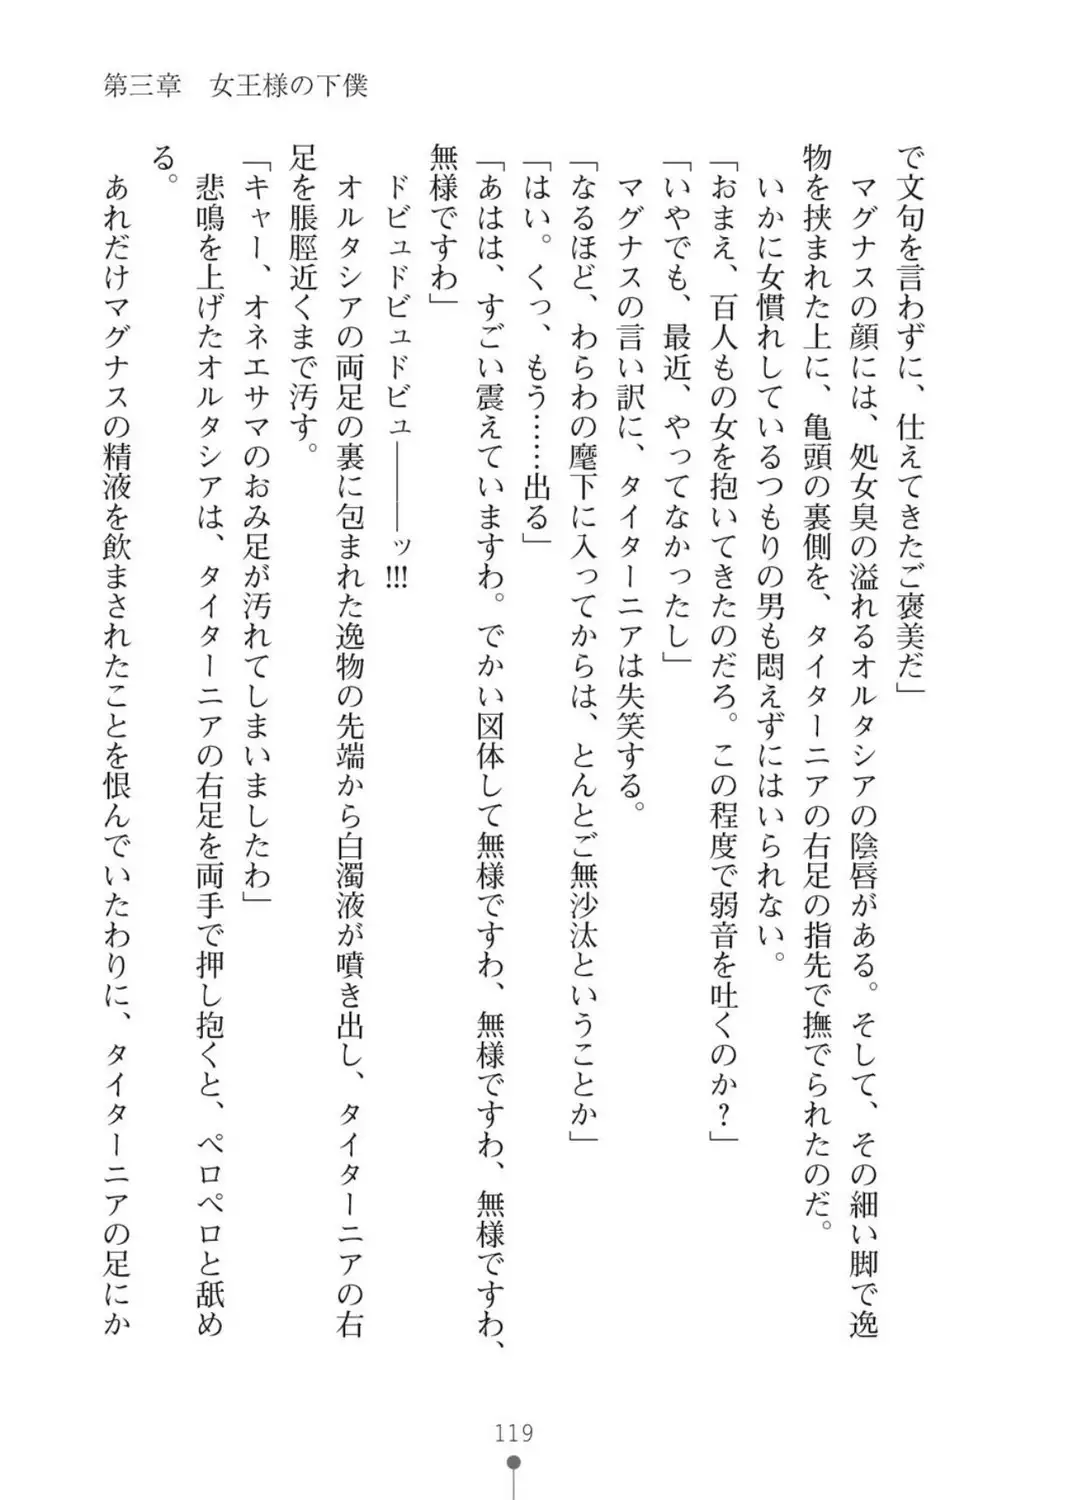 第三章　女王様の下僕
で文句を言わずに、仕えてきたご褒美だ」
　マグナスの顔には、処女臭の溢れるオルタシアの陰唇がある。そして、その細い脚で逸
物を挟まれた上に、亀頭の裏側を、タイターニアの右足の指先で撫でられたのだ。
　いかに女慣れしているつもりの男も悶えずにはいられない。
「おまえ、百人もの女を抱いてきたのだろ。この程度で弱音を吐くのか？」
「いやでも、最近、やってなかったし」
　マグナスの言い訳に、タイターニアは失笑する。
「なるほど、わらわの麾下に入ってからは、とんとご無沙汰ということか」
「はい。くっ、もう……出る」
「あはは、すごい震えていますわ。でかい図体して無様ですわ、無様ですわ、無様ですわ、
無様ですわ」
　ドビュドビュドビュ―――ッ!!!
　オルタシアの両足の裏に包まれた逸物の先端から白濁液が噴き出し、タイターニアの右
足を脹脛近くまで汚す。
「キャー、オネエサマのおみ足が汚れてしまいましたわ」
　悲鳴を上げたオルタシアは、タイターニアの右足を両手で押し抱くと、ペロペロと舐め
る。
　あれだけマグナスの精液を飲まされたことを恨んでいたわりに、タイターニアの足にか
119